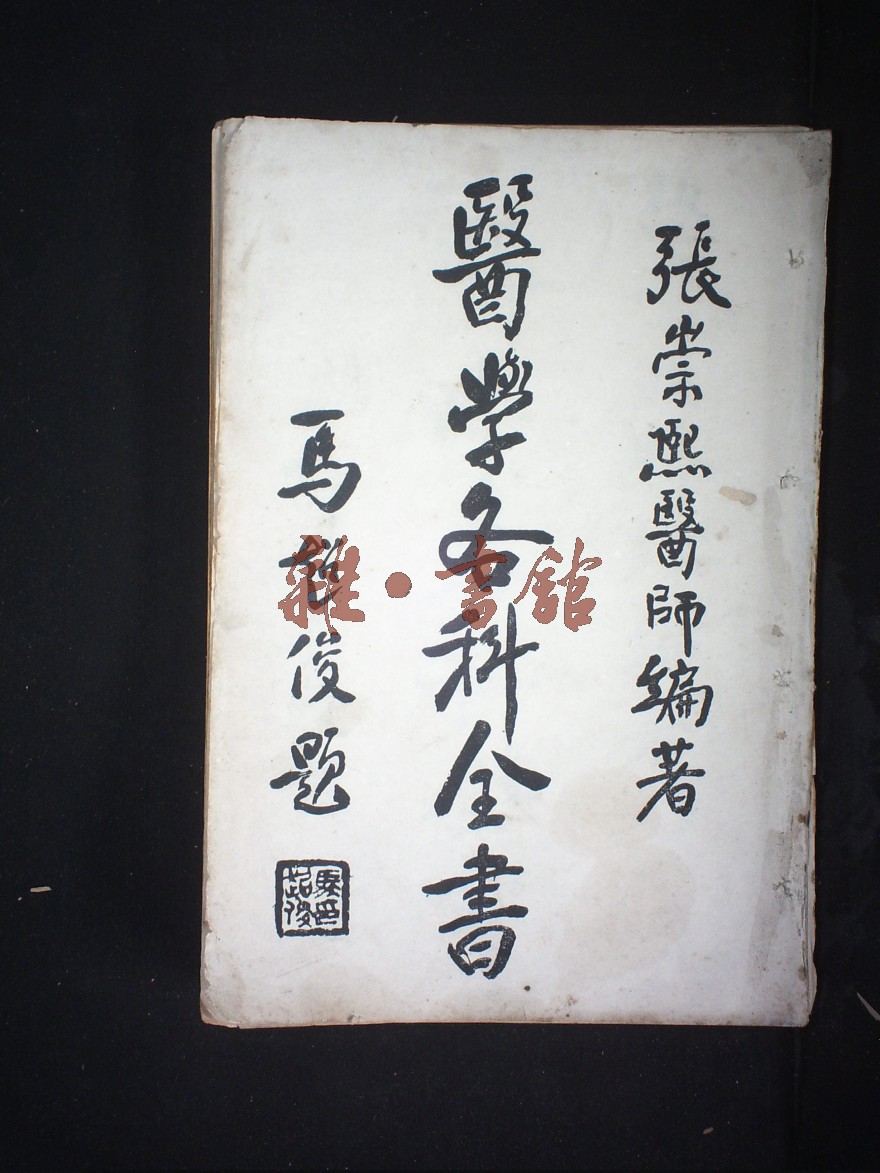 張崇熙醫師編著
醫學各科全書
馬超俊題
馬印超俊
雜·書館